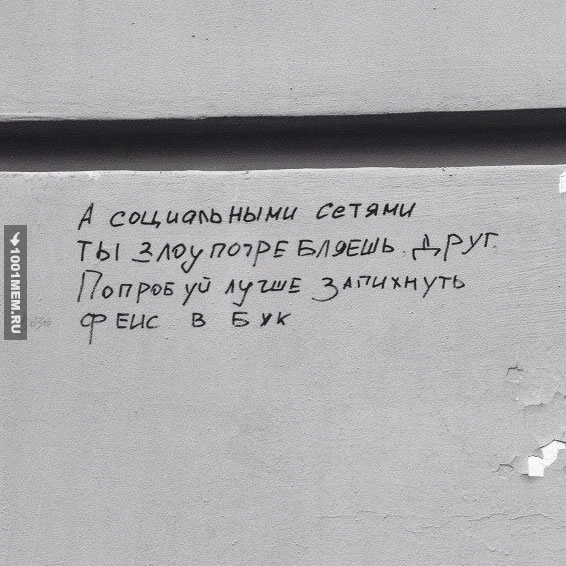 А социальными сетями
ты злоупотребляешь. друг.
Попробуй лучше запихнуть
фейс в бук
1001MEM.RU